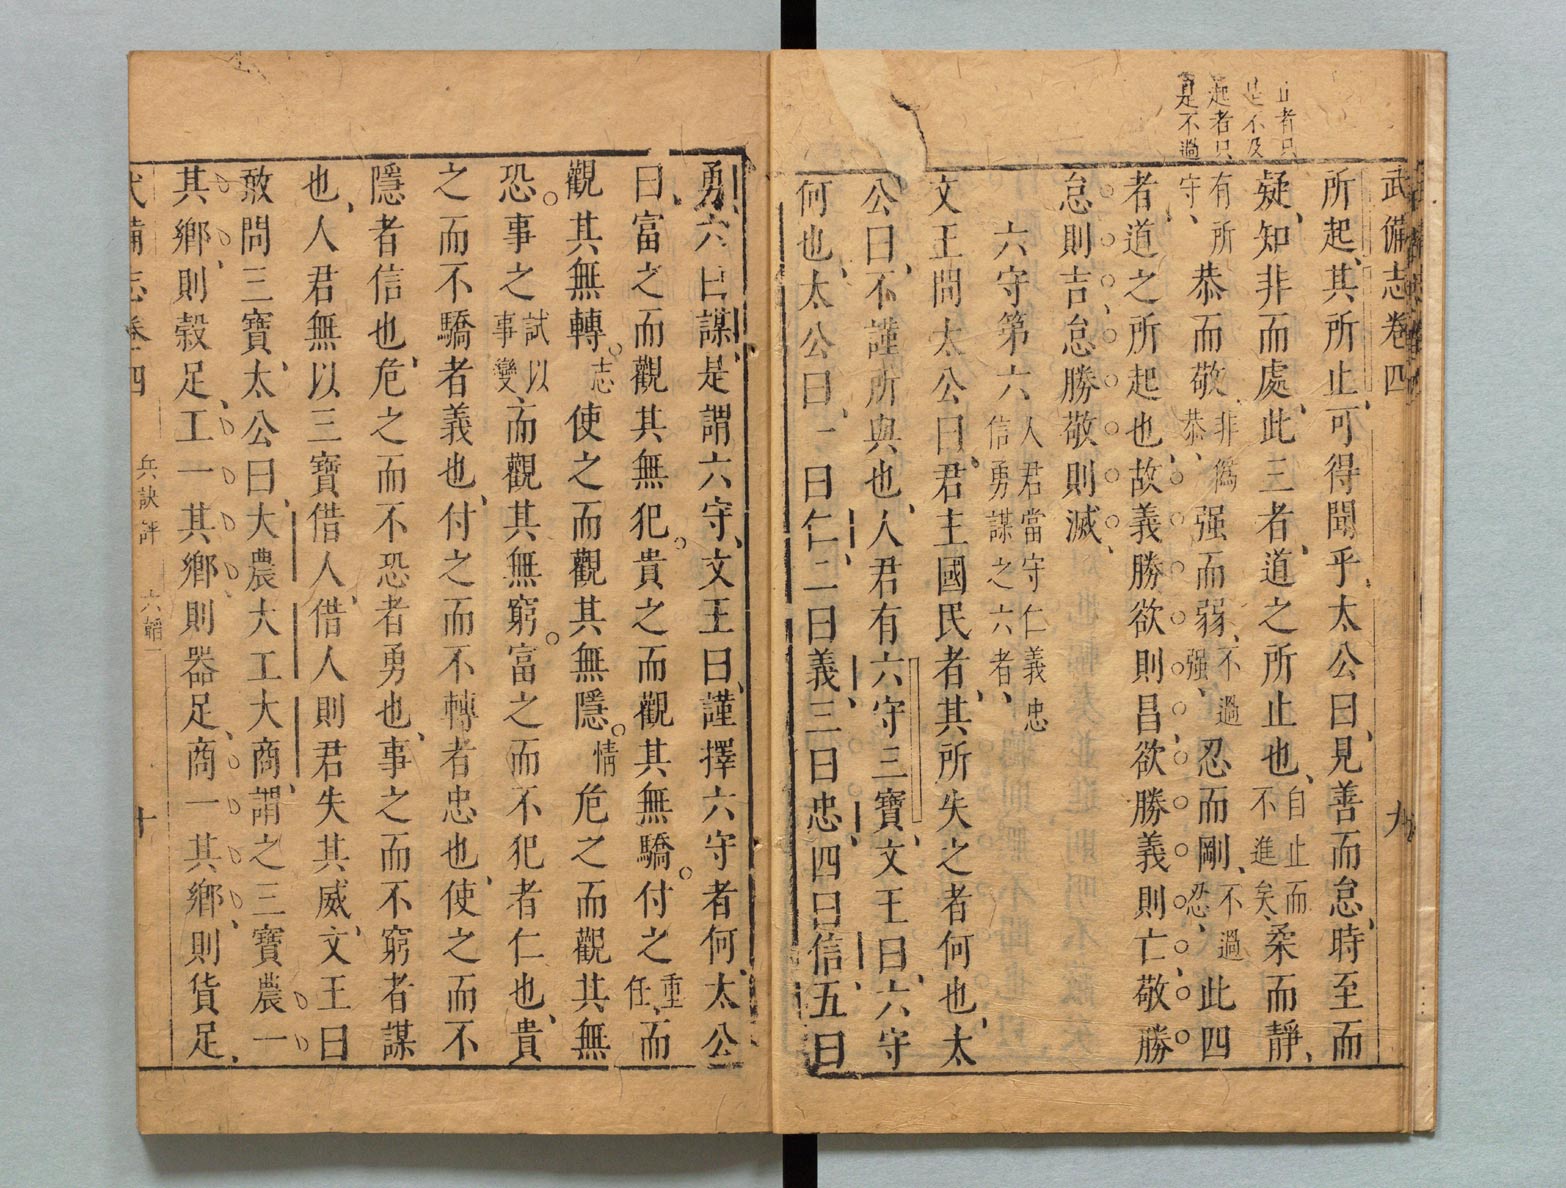 武備志卷四
九
止者只
是不及
起者只
是不過
所起其所止可得聞乎太公曰見善而怠時至而
疑知非而處此三者道之所止也自止而不進矣柔而靜
有所守恭而敬非僞恭强而弱不過强忍而剛不過忍此四
者道之所起也故義勝欲則昌欲勝義則亡敬勝
怠則吉怠勝敬則滅
六守第六人君當守仁義忠信勇謀之六者
文王問太公曰君主國民者其所失之者何也太
公曰不謹所與也人君有六守三寶文王曰六守
何也太公曰一曰仁二曰義三曰忠四曰信五曰
勇六曰謀是謂六守文王曰謹擇六守者何太公
曰富之而觀其無犯貴之而觀其無驕付之重任而
觀其無轉志使之而觀其無隱情危之而觀其無
恐事之試以事變而觀其無窮富之而不犯者仁也貴
之而不驕者義也付之而不轉者忠也使之而不
隱者信也危之而不恐者勇也事之而不窮者謀
也人君無以三寶借人借人則君失其威文王曰
敢問三寶太公曰大農大工大商謂之三寶農一
其鄉則穀足工一其鄉則器足商一其鄉則貨足
武備志卷四
兵訣評
六韜一
十